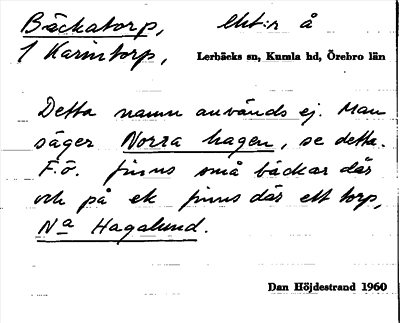 Bäckatorp, ekt:n å
1 Karintorp, Lerbäcks sn, Kumla hd, Örebro län
Detta namn används ej. Man
säger Norra hagen, se detta.
F.ö. finns små bäckar där
och på ek finns där ett torp,
Na Hagalund.
Dan Höjdestrand 1960